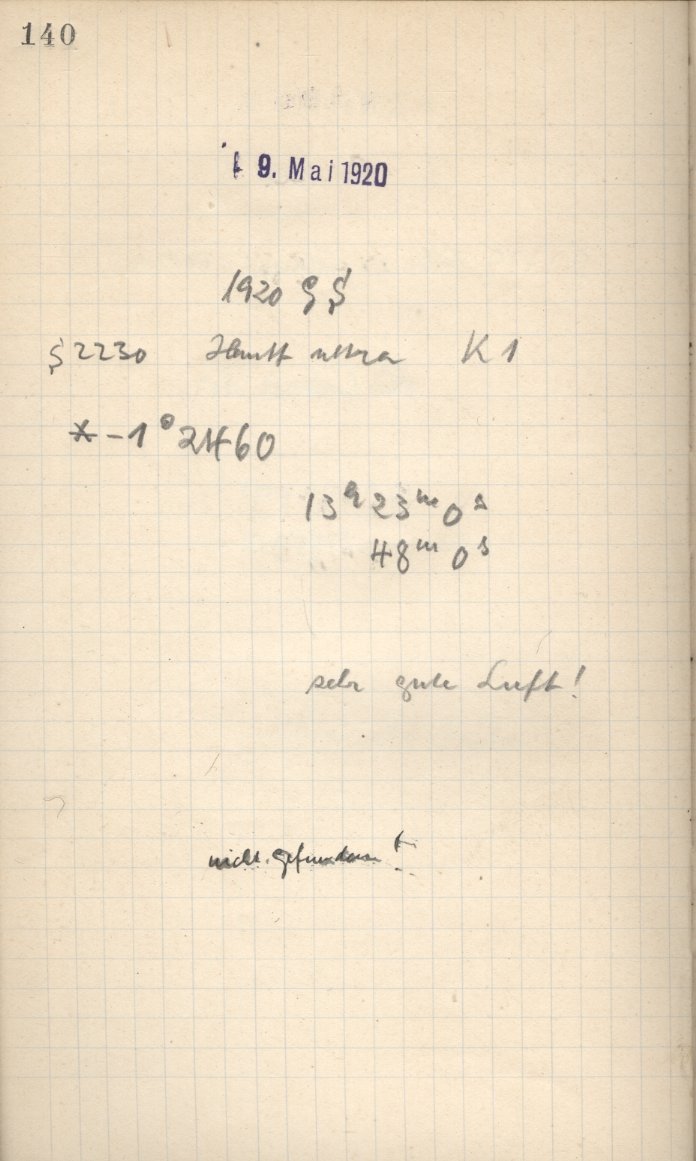 140
9. Mai 1920
1920 G
2230 Hauff ultra K 1
* -1° 2460
13h 23m 0s
48m 0s
sehr gute Luft!
nicht gefunden!